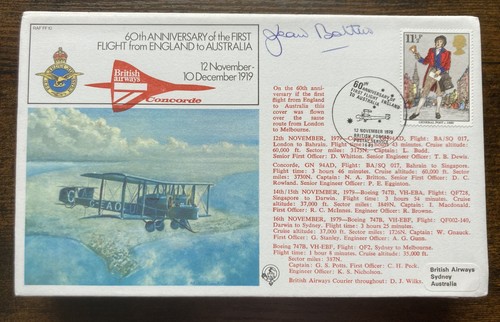 RAF FF 10
60th ANNIVERSARY of the FIRST
FLIGHT from ENGLAND to AUSTRALIA
12 November-
10 December 1919
British
airways
Concorde
Jean Batten
11½P
60TH ANNIVERSARY
FIRST FLIGHT ENGLAND
TO AUSTRALIA
12 NOVEMBER 1979
BRITISH FORCES
POSTAL SERVICE
On the 60th anni-
versary if the first
flight from England
to Australia this
cover was flown
over the same
route from London
to Melbourne.
12th NOVEMBER, 1979—Concorde, Flight: BA/SQ 017,
London to Bahrain. Flight time: hours 43 minutes. Cruise altitude:
60,000 ft. Sector miles: 3175N. Captain: L. Budd.
Senior First Officer: D. Whitton. Senior Engineer Officer: T. R. Dewis.
Concorde, GN 94AD, Flight: BA/SQ 017, Bahrain to Singapore.
Flight time: 3 hours 46 minutes. Cruise altitude: 60,000 ft. Sector
miles: 3730N. Captain: N. A. Britton. Senior First Officer: D. C.
Rowland. Senior Engineer Officer: P. E. Egginton.
14th/15th NOVEMBER, 1979—Boeing 747B, VH-EBA, Flight: QF728,
Singapore to Darwin. Flight time: 3 hours 54 minutes. Cruise
altitude: 37,000 ft. Sector miles: 1840N. Captain: J. Macdonald.
First Officer: R. C. McInnes. Engineer Officer: R. Broven.
16th NOVEMBER, 1979—Boeing 747B, VH-EBF, Flight: QF002-140,
Darwin to Sydney. Flight time: 3 hours 25 minutes.
Cruise altitude: 37,000 ft. Sector miles: 1726N. Captain: W. Gussack.
First Officer: G. Stanley. Engineer Officer: A. G. Gunn.
Boeing 747B, VH-EBF, Flight: QF2, Sydney to Melbourne.
Flight time: 1 hour 8 minutes. Cruise altitude: 35,000 ft.
Sector miles: 387N.
Captain: G. S. Potts. First Officer: C. H. Peck.
Engineer Officer: K. S. Nicholson.
British Airways Courier throughout: D. J. Wilks.
G EAO
British Airways
Sydney
Australia